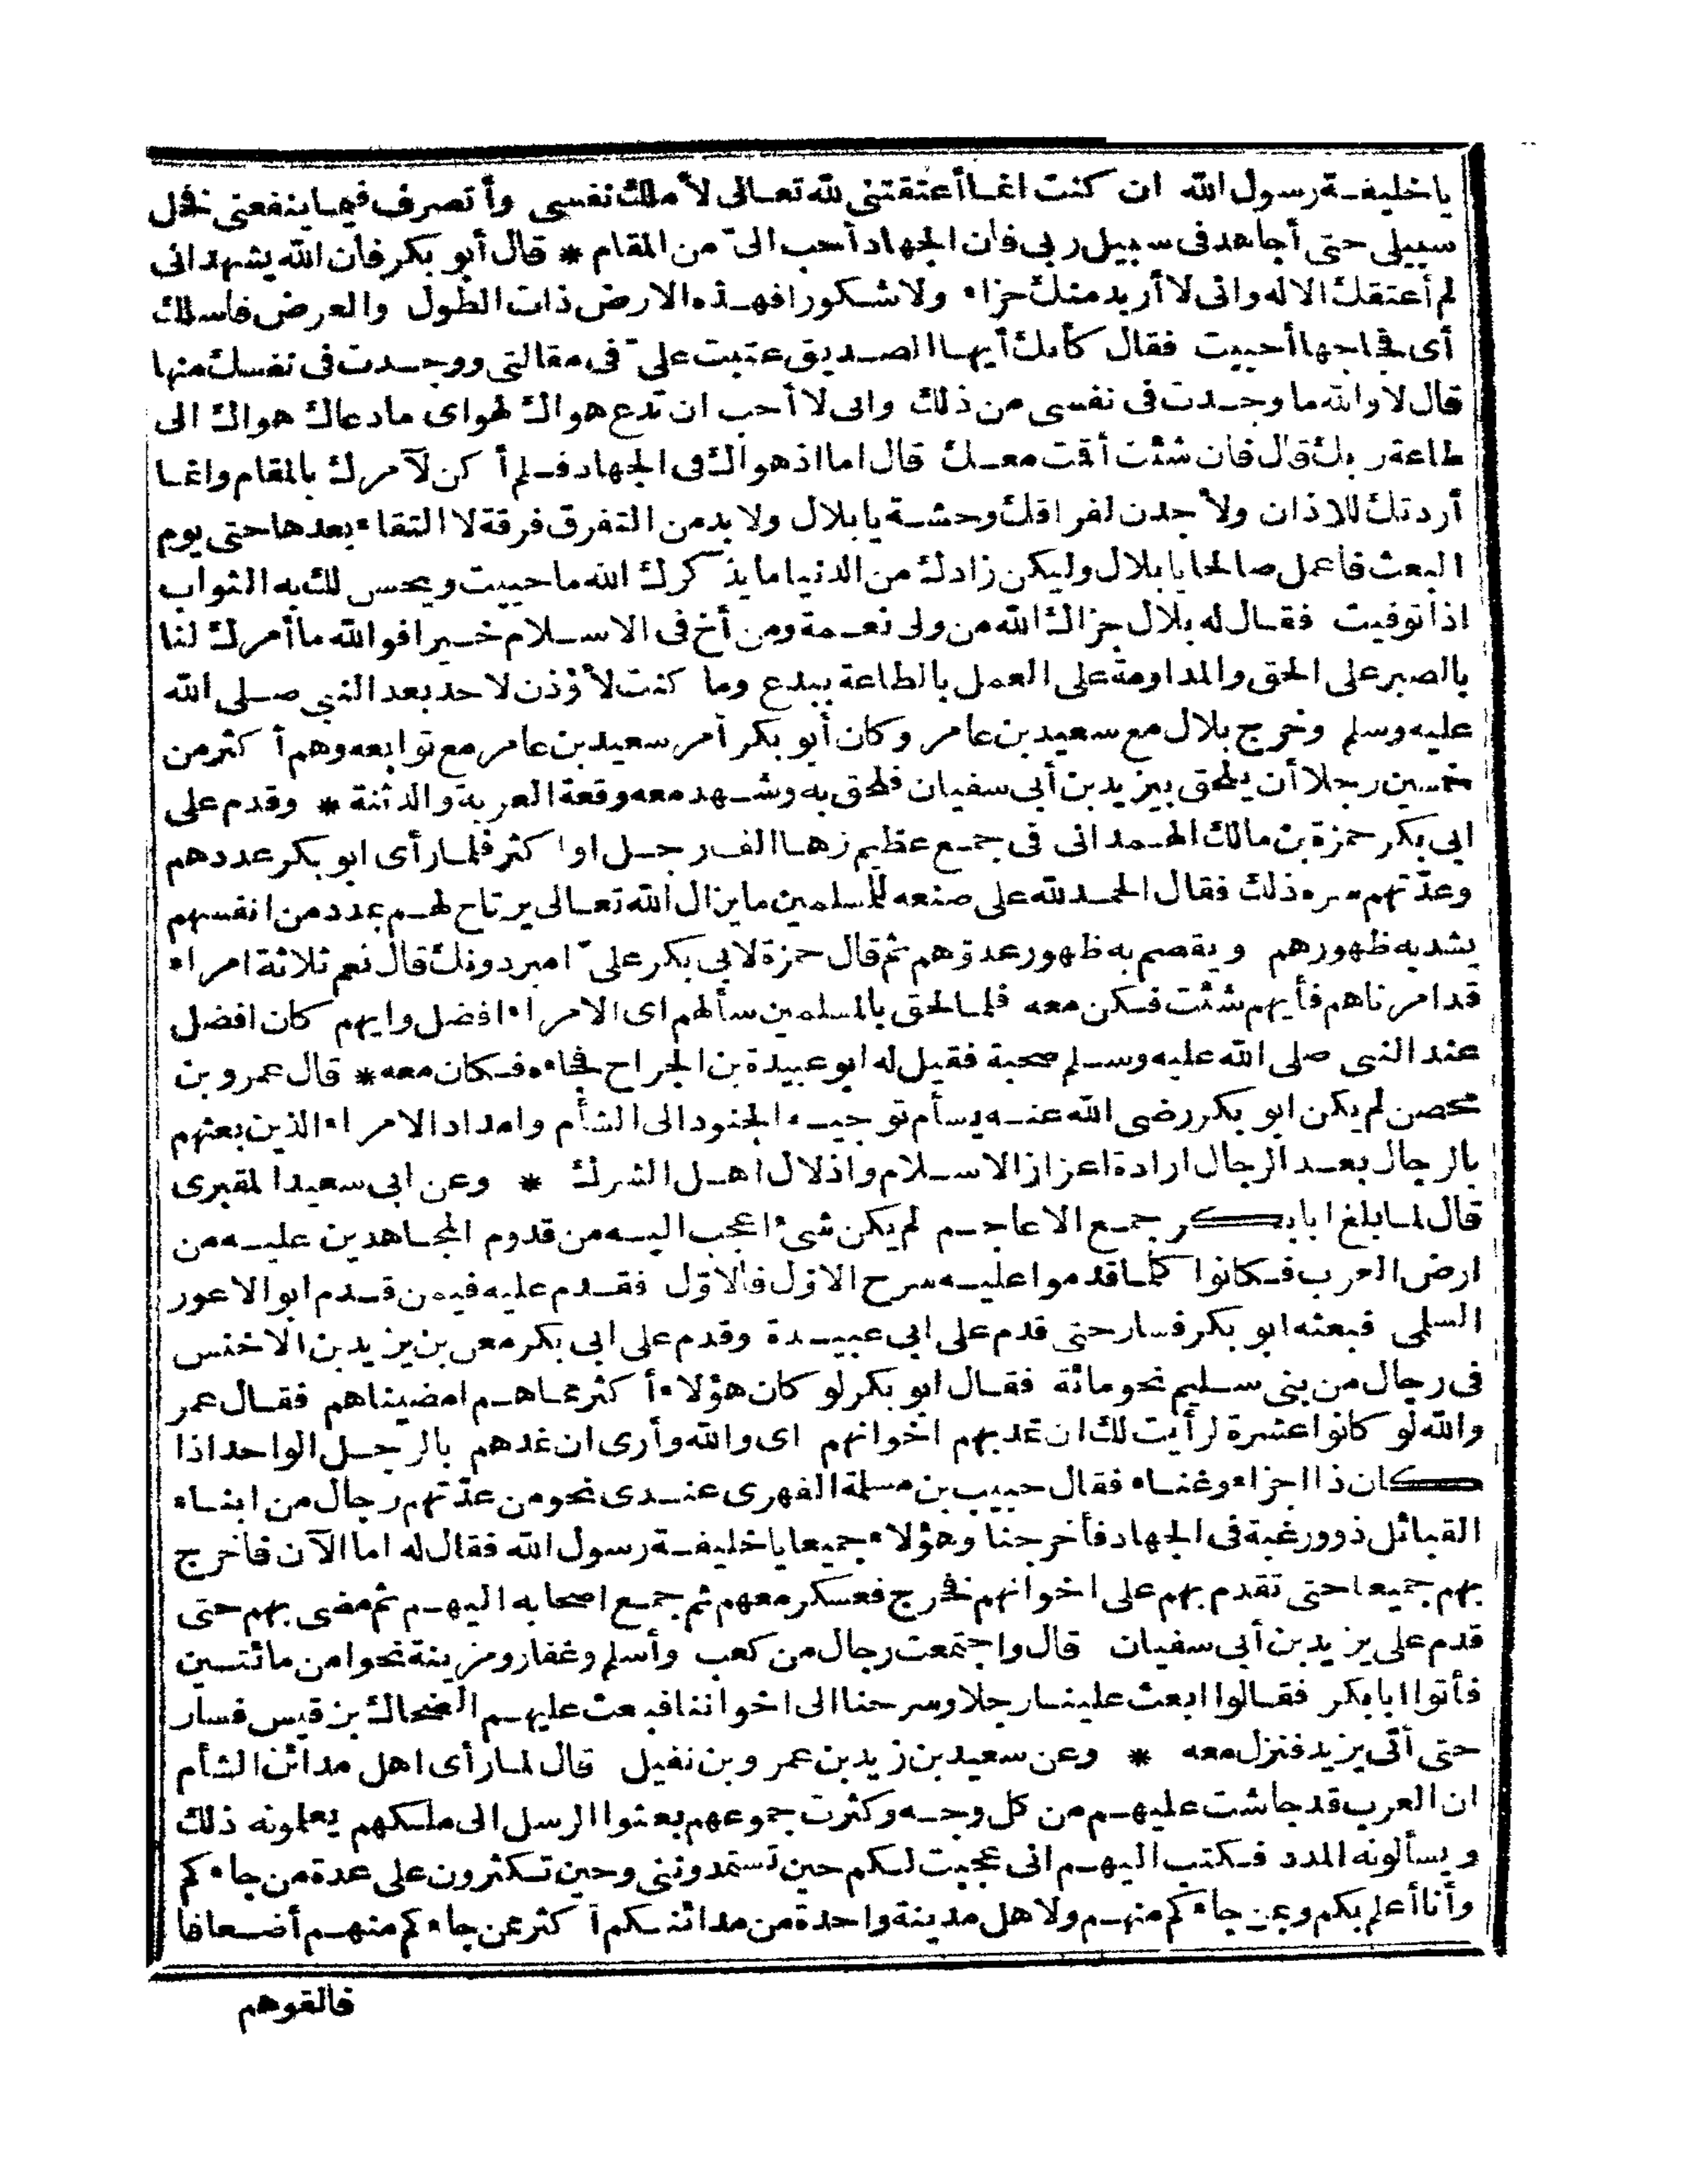 ياخليفة رسول الله ان كنت انما أعتقتنى لله تعالى لأملك نفسى وأتصرف فيما ينفعنى فخل
سبيلى حتى أجاهد فى سبيل ربى فان الجهاد أحب الىّ من المقام * قال أبو بكر فان الله يشهد انى
لم أعتقك الا له وانى لا أريد منك جزاء ولا شكورا فهذه الارض ذات الطول والعرض فاسلك
أى فجاجها أحببت فقال كأنك أيها الصديق عتبت علىّ فى مقالتى ووجدت فى نفسك منها
قال لا والله ما وجدت فى نفسى من ذلك وانى لا أحب ان تدع هواك لهواى ما دعاك هواك الى
طاعة ربك قال فان شئت أقمت معك قال اما اذ هواك فى الجهاد فلم أكن لآمرك بالمقام وانما
أردتك للاذان ولأجدن لفراقك وحشة يا بلال ولا بد من التفرق فرقة لا التقاء بعدها حتى يوم
البعث فاعمل صالحا يا بلال وليكن زادك من الدنيا ما يذكرك الله ما حييت ويحسن لك به الثواب
اذا توفيت فقال له بلال جزاك الله من ولى نعمة ومن أخ فى الاسلام خيرا فوالله ما أمرك لنا
بالصبر على الحق والمداومة على العمل بالطاعة ببدع وما كنت لأؤذن لاحد بعد النبى صلى الله
عليه وسلم وخرج بلال مع سعيد بن عامر وكان أبو بكر أمر سعيد بن عامر مع توابعه وهم أكثر من
خمسين رجلا أن يلحق بيزيد بن أبى سفيان فلحق به وشهد معه وقعة العربة والدثنة * وقدم على
ابى بكر حمزة بن مالك الهمدانى فى جمع عظيم زها الف رجل او اكثر فلما رأى ابو بكر عددهم
وعدّتهم سره ذلك فقال الحمد لله على صنعه للمسلمين ما يزال الله تعالى يرتاح لهم بمدد من انفسهم
يشد به ظهورهم ويقصم به ظهور عدوّهم ثم قال حمزة لابى بكر علىّ امير دونك قال نعم ثلاثة امراء
قد امرناهم فأيهم شئت فكن معه فلما لحق بالمسلمين سألهم اى الامراء افضل وايهم كان افضل
عند النبى صلى الله عليه وسلم صحبة فقيل له ابو عبيدة بن الجراح فجاءه فكان معه * قال عمرو بن
محصن لم يكن ابو بكر رضى الله عنه يسأم توجيه الجنود الى الشأم وامداد الامراء الذين بعثهم
بالرجال بعد الرجال ارادة اعزاز الاسلام واذلال اهل الشرك * وعن ابى سعيد المقبرى
قال لما بلغ ابا بكر جمع الاعاجم لم يكن شئ اعجب اليه من قدوم المجاهدين عليه من
ارض العرب فكانوا كلما قدموا عليه سرح الاوّل فالاوّل فقدم عليه فيمن قدم ابو الاعور
السلمى فبعثه ابو بكر فسار حتى قدم على ابى عبيدة وقدم على ابى بكر معن بن يزيد بن الاخنس
فى رجال من بنى سليم نحو مائة فقال ابو بكر لو كان هؤلاء أكثر مما هم امضيناهم فقال عمر
والله لو كانوا عشرة لرأيت لك ان تمد بهم اخوانهم اى والله وأرى ان نمدهم بالرجل الواحد اذا
كان ذا اجزاء وغناء فقال حبيب بن مسلمة الفهرى عندى نحو من عدّتهم رجال من ابناء
القبائل ذوو رغبة فى الجهاد فأخرجنا وهؤلاء جميعا ياخليفة رسول الله فقال له اما الآن فاخرج
بهم جميعا حتى تقدم بهم على اخوانهم فخرج فعسكر معهم ثم جمع اصحابه اليهم ثم مضى بهم حتى
قدم على يزيد بن أبى سفيان قال واجتمعت رجال من كعب وأسلم وغفار ومزينة نحوا من مائتين
فأتوا ابا بكر فقالوا ابعث علينا رجلا وسرحنا الى اخواننا فبعث عليهم الضحاك بن قيس فسار
حتى أتى يزيد فنزل معه * وعن سعيد بن زيد بن عمرو بن نفيل قال لما رأى اهل مدائن الشأم
ان العرب قد جاشت عليهم من كل وجه وكثرت جموعهم بعثوا الرسل الى ملكهم يعلمونه ذلك
ويسألونه المدد فكتب اليهم انى عجبت لكم حين تستمدوننى وحين تكثرون على عدة من جاءكم
وأنا أعلم بكم وبمن جاءكم منهم ولاهل مدينة واحدة من مدائنكم أكثر ممن جاءكم منهم أضعافا
فالقوهم